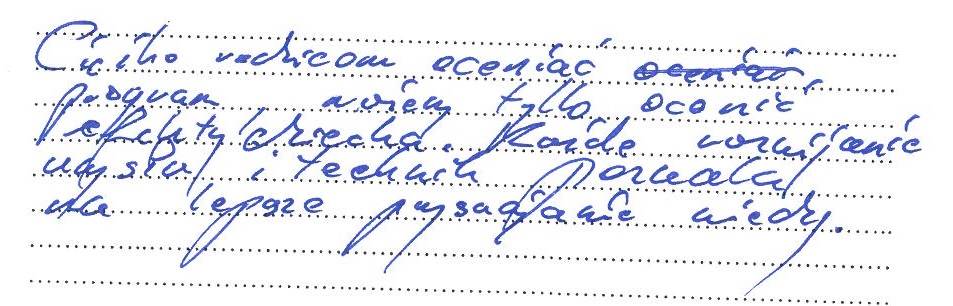 Ciężko rodzicom oceniać oceniać
program możemy tylko ocenić
efekty dziecka. Każde rozwijanie
umysłu i technik pozwala
na lepsze przyswajanie wiedzy.